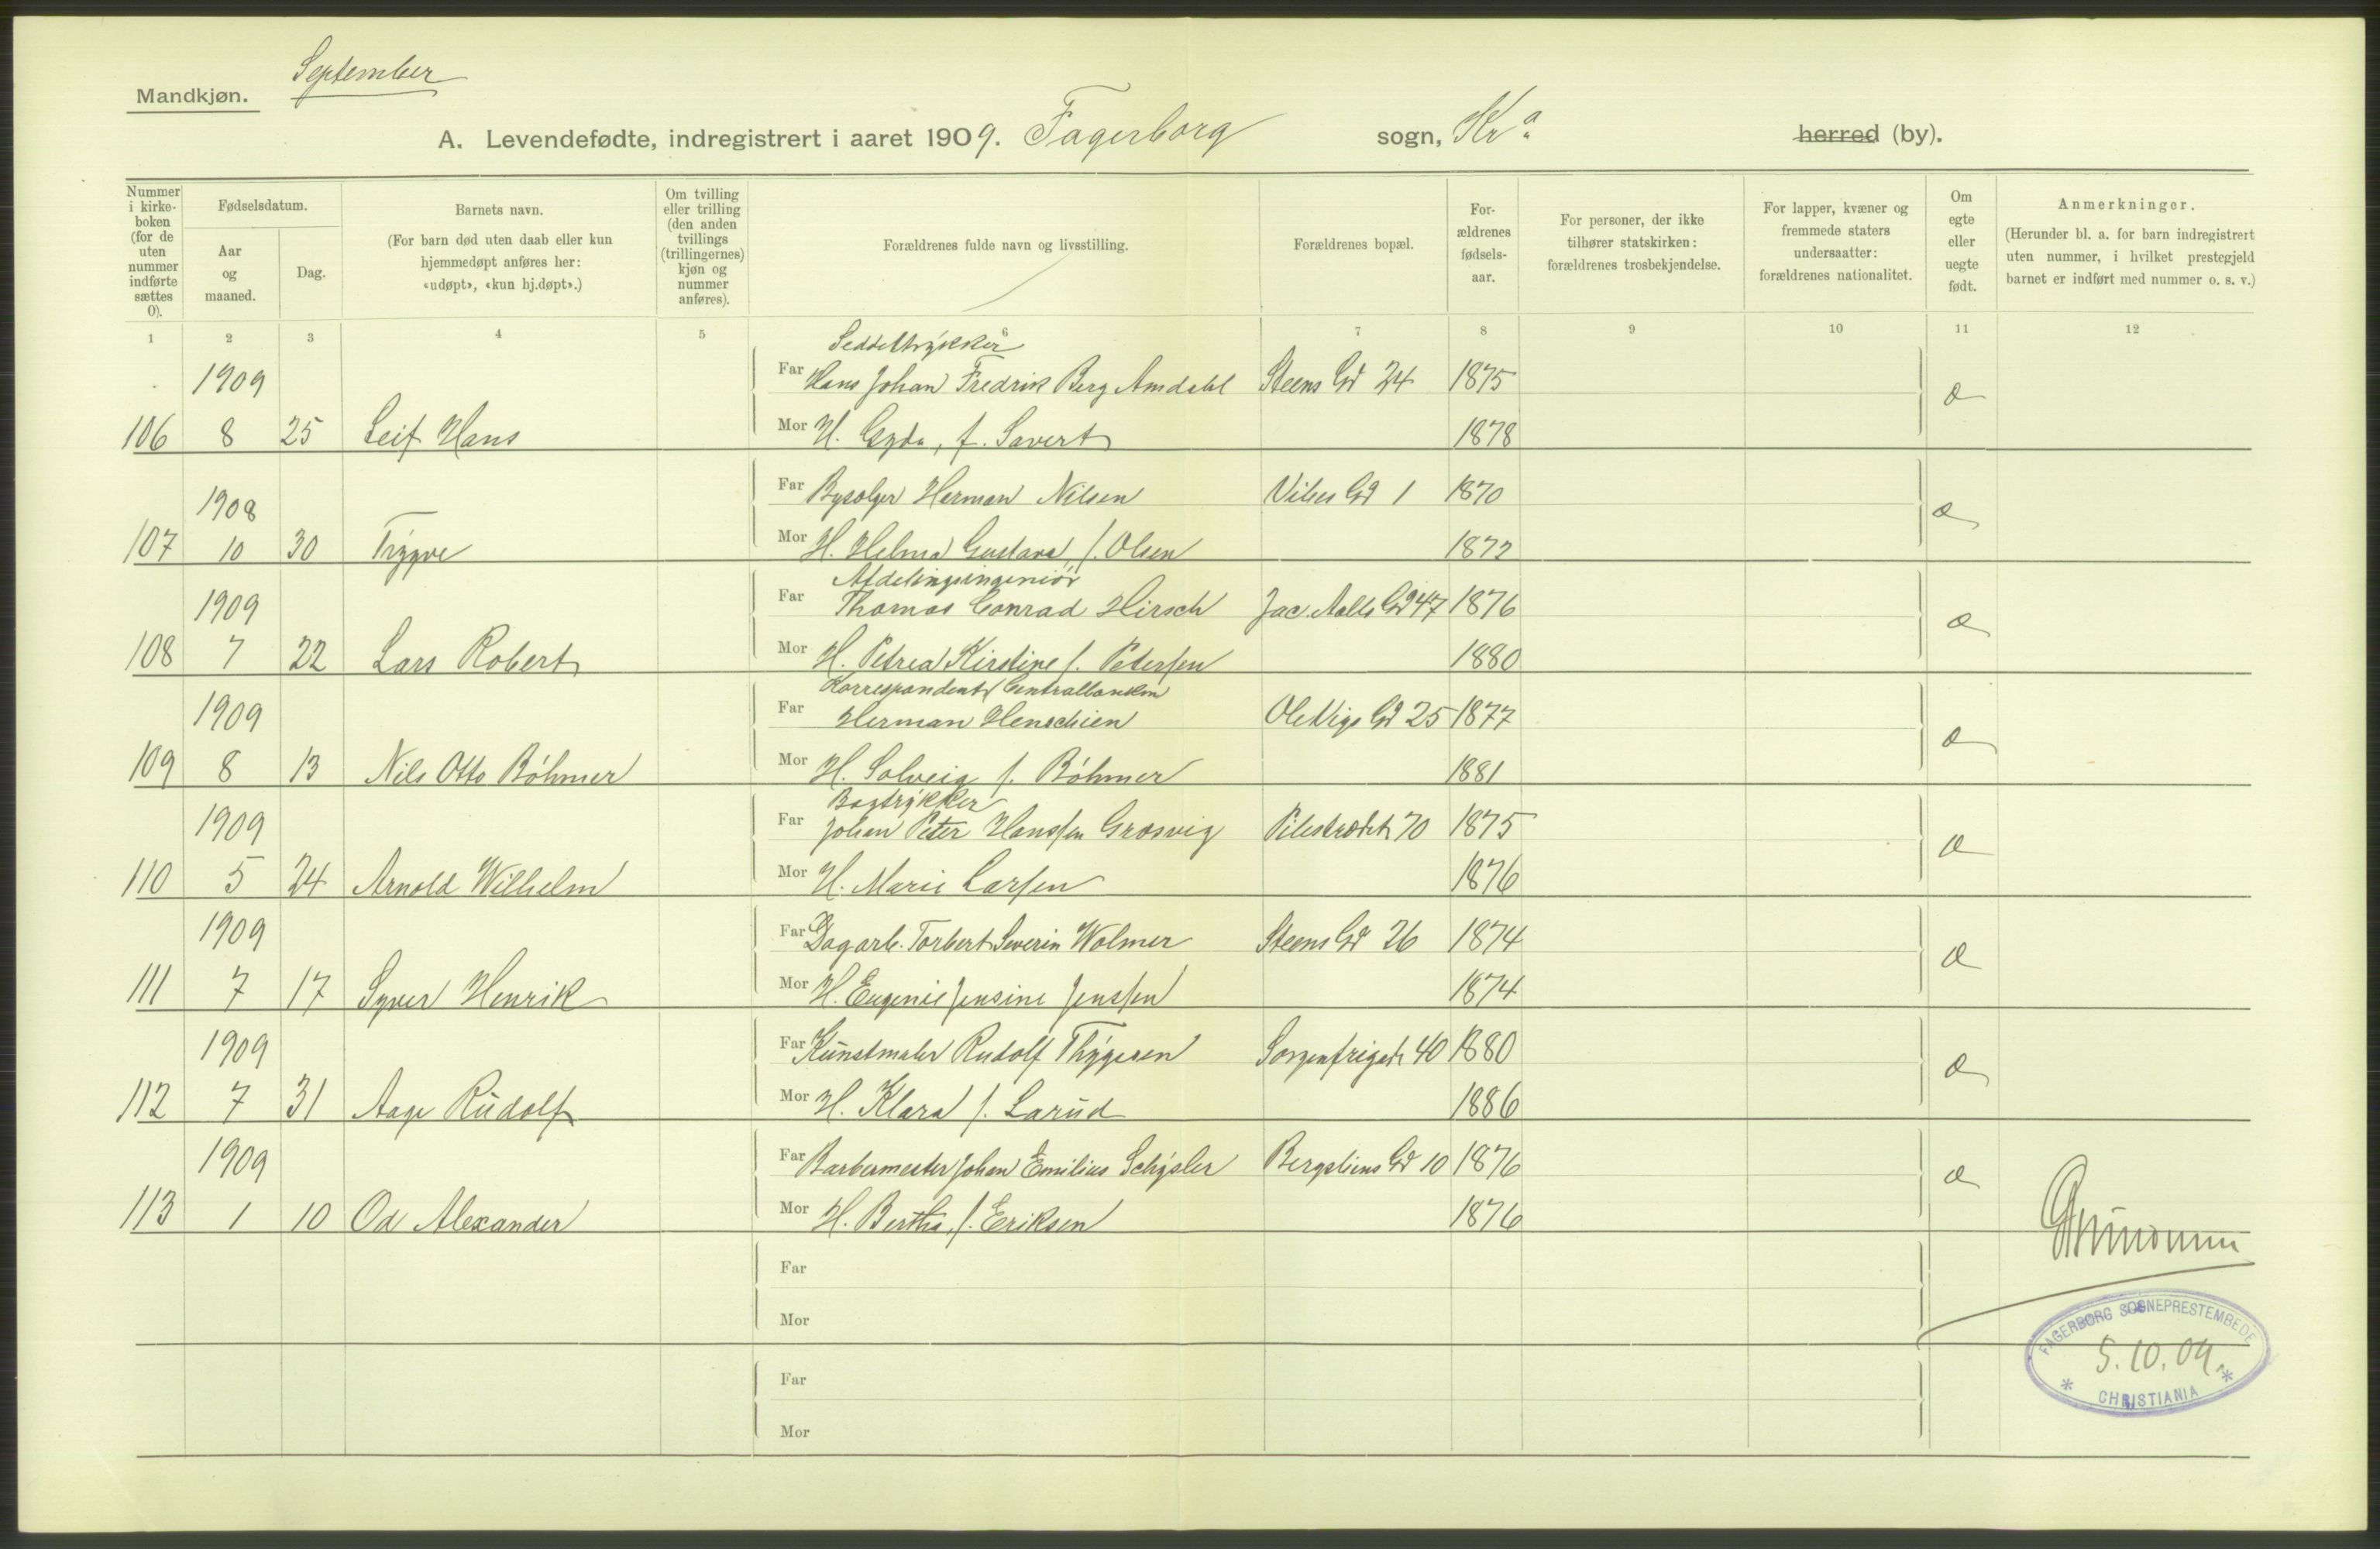 September
Mandkjøn.
A. Levendefødte, indregistrert i aaret 1909. Fagerborg sogn, Kra herred (by).
Nummer i kirkeboken (for de uten nummer indførte sættes 0).
Fødselsdatum.
Aar og maaned.
Dag.
Barnets navn.
(For barn død uten daab eller kun hjemmedøpt anføres her: «udøpt», «kun hj.døpt».)
Om tvilling eller trilling (den anden tvillings (trillingernes) kjøn og nummer anføres).
Forældrenes fulde navn og livsstilling.
Forældrenes bopæl.
Forældrenes fødselsaar.
For personer, der ikke tilhører statskirken: forældrenes trosbekjendelse.
For lapper, kvæner og fremmede staters undersaatter: forældrenes nationalitet.
Om egte eller uegte født.
Anmerkninger.
(Herunder bl. a. for barn indregistrert uten nummer, i hvilket prestegjeld barnet er indført med nummer o. s. v.)
1 2 3 4 5 6 7 8 9 10 11 12
Seddeltrykker
1909 Far Hans Johan Fredrik Berg Amdahl Steens Gd 24 1875 æ
106 8 25 Leif Hans Mor H. Gyda, f. Savert 1878
1908 Far Bysolger Herman Nilsen Vibes Gd 1 1870 æ
107 10 30 Trygve Mor H. Helma Gustava f. Olsen 1872
Afdelingsingeniör
1909 Far Thomas Conrad Hirsch Jac. Aalls Gd 47 1876 æ
108 7 22 Lars Robert Mor H. Petrea Kirstine f. Petersen 1880
Korrespondent Centralbanken
1909 Far Herman Henschien Ole Vigs Gd 25 1877 æ
109 8 13 Nils Otto Böhmer Mor H. Solveig f. Böhmer 1881
Bogtrykker
1909 Far Johan Peter Hanssen Grosvig Pilestrædet 70 1875 æ
110 5 24 Arnold Wilhelm Mor H. Marie Larsen 1876
1909 Far Dagarb. Torbert Severin Wolmer Steens Gd 26 1874 æ
111 7 17 Syver Henrik Mor H. Eugenie Jensine Jenssen 1874
1909 Far Kunstmaler Rudolf Thygesen Sorgenfrigd. 40 1880 æ
112 7 31 Aage Rudolf Mor H. Klara f. Larud 1886
1909 Far Barbermester Johan Emilius Schysler Bergsliens Gd 10 1876 æ
113 1 10 Od Alexander Mor H. Bertha, f. Eriksen 1876
Far
Mor
Far
Mor
FAGERBORG SOGNEPRESTEMBEDE
5.10.09.
* CHRISTIANIA *